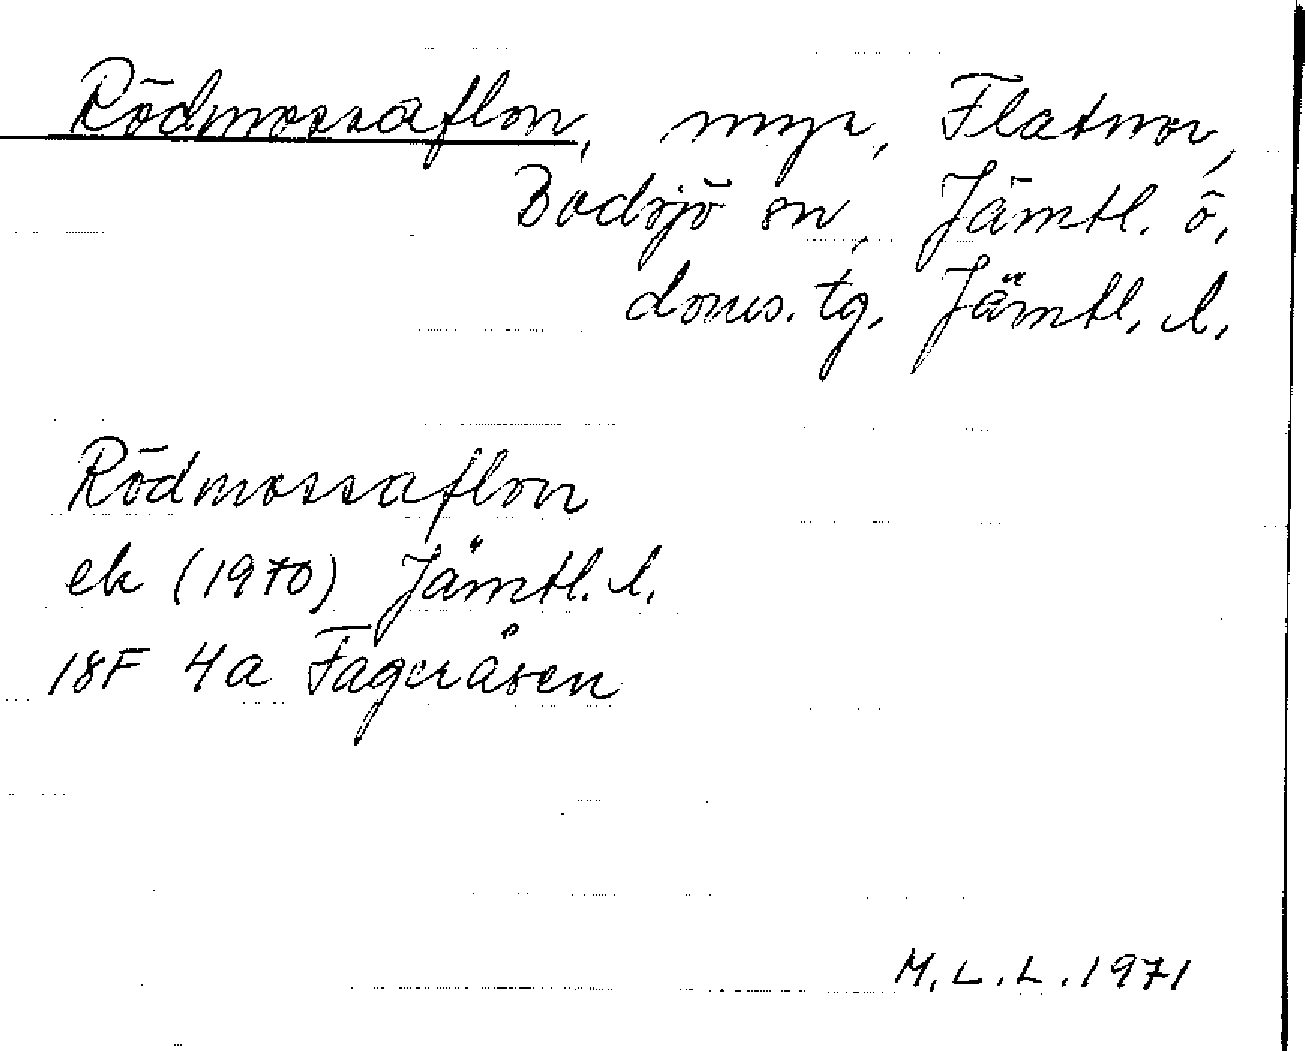 Rödmossaflon, myr, Flatnor,
Bodsjö sn, Jämtl. ö.
doms. tg. Jämtl. l.
Rödmossaflon
ek (1970) Jämtl. l.
18F 4a Fageråsen
M. L. L. 1971